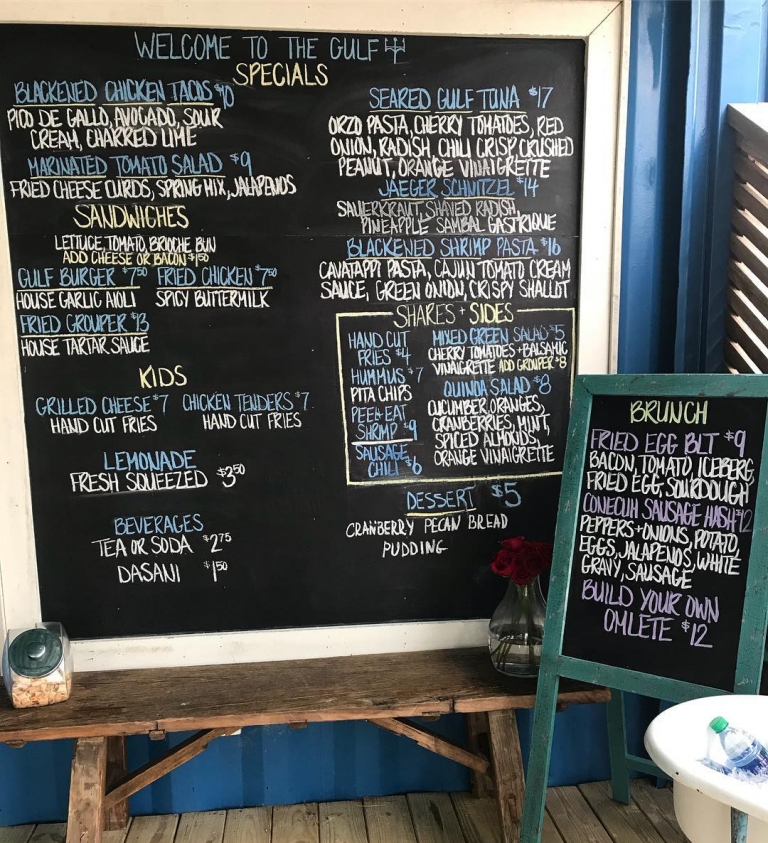 WELCOME TO THE GULF
SPECIALS
BLACKENED CHICKEN TACOS $10
PICO DE GALLO, AVOCADO, SOUR
CREAM, CHARRED LIME
MARINATED TOMATO SALAD $9
FRIED CHEESE CURDS, SPRING MIX, JALAPENOS
SANDWICHES
LETTUCE, TOMATO, BRIOCHE BUN
ADD CHEESE OR BACON $1.50
GULF BURGER $7.50 FRIED CHICKEN $7.50
HOUSE GARLIC AIOLI SPICY BUTTERMILK
FRIED GROUPER $13
HOUSE TARTAR SAUCE
KIDS
GRILLED CHEESE $7 CHICKEN TENDERS $7
HAND CUT FRIES HAND CUT FRIES
LEMONADE
FRESH SQUEEZED $3.50
BEVERAGES
TEA OR SODA $2.75
DASANI $1.50
SEARED GULF TUNA $17
ORZO PASTA, CHERRY TOMATOES, RED
ONION, RADISH, CHILI CRISP, CRUSHED
PEANUT, ORANGE VINAIGRETTE
JAEGER SCHNITZEL $14
SAUERKRAUT, SHAVED RADISH,
PINEAPPLE SAMBAL GASTRIQUE
BLACKENED SHRIMP PASTA $16
CAVATAPPI PASTA, CAJUN TOMATO CREAM
SAUCE, GREEN ONION, CRISPY SHALLOT
SHARES + SIDES
HAND CUT
FRIES $4
HUMMUS $7
PITA CHIPS
PEEL+EAT
SHRIMP $9
SAUSAGE
CHILI $6
MIXED GREEN SALAD $5
CHERRY TOMATOES + BALSAMIC
VINAIGRETTE ADD GROUPER $8
QUINOA SALAD $8
CUCUMBER, ORANGES,
CRANBERRIES, MINT,
SPICED ALMONDS,
ORANGE VINAIGRETTE
DESSERT $5
CRANBERRY PECAN BREAD
PUDDING
BRUNCH
FRIED EGG BLT $9
BACON, TOMATO, ICEBERG,
FRIED EGG, SOURDOUGH
CONECUH SAUSAGE HASH $12
PEPPERS+ONIONS, POTATO,
EGGS, JALAPENOS, WHITE
GRAVY, SAUSAGE
BUILD YOUR OWN
OMLETE $12